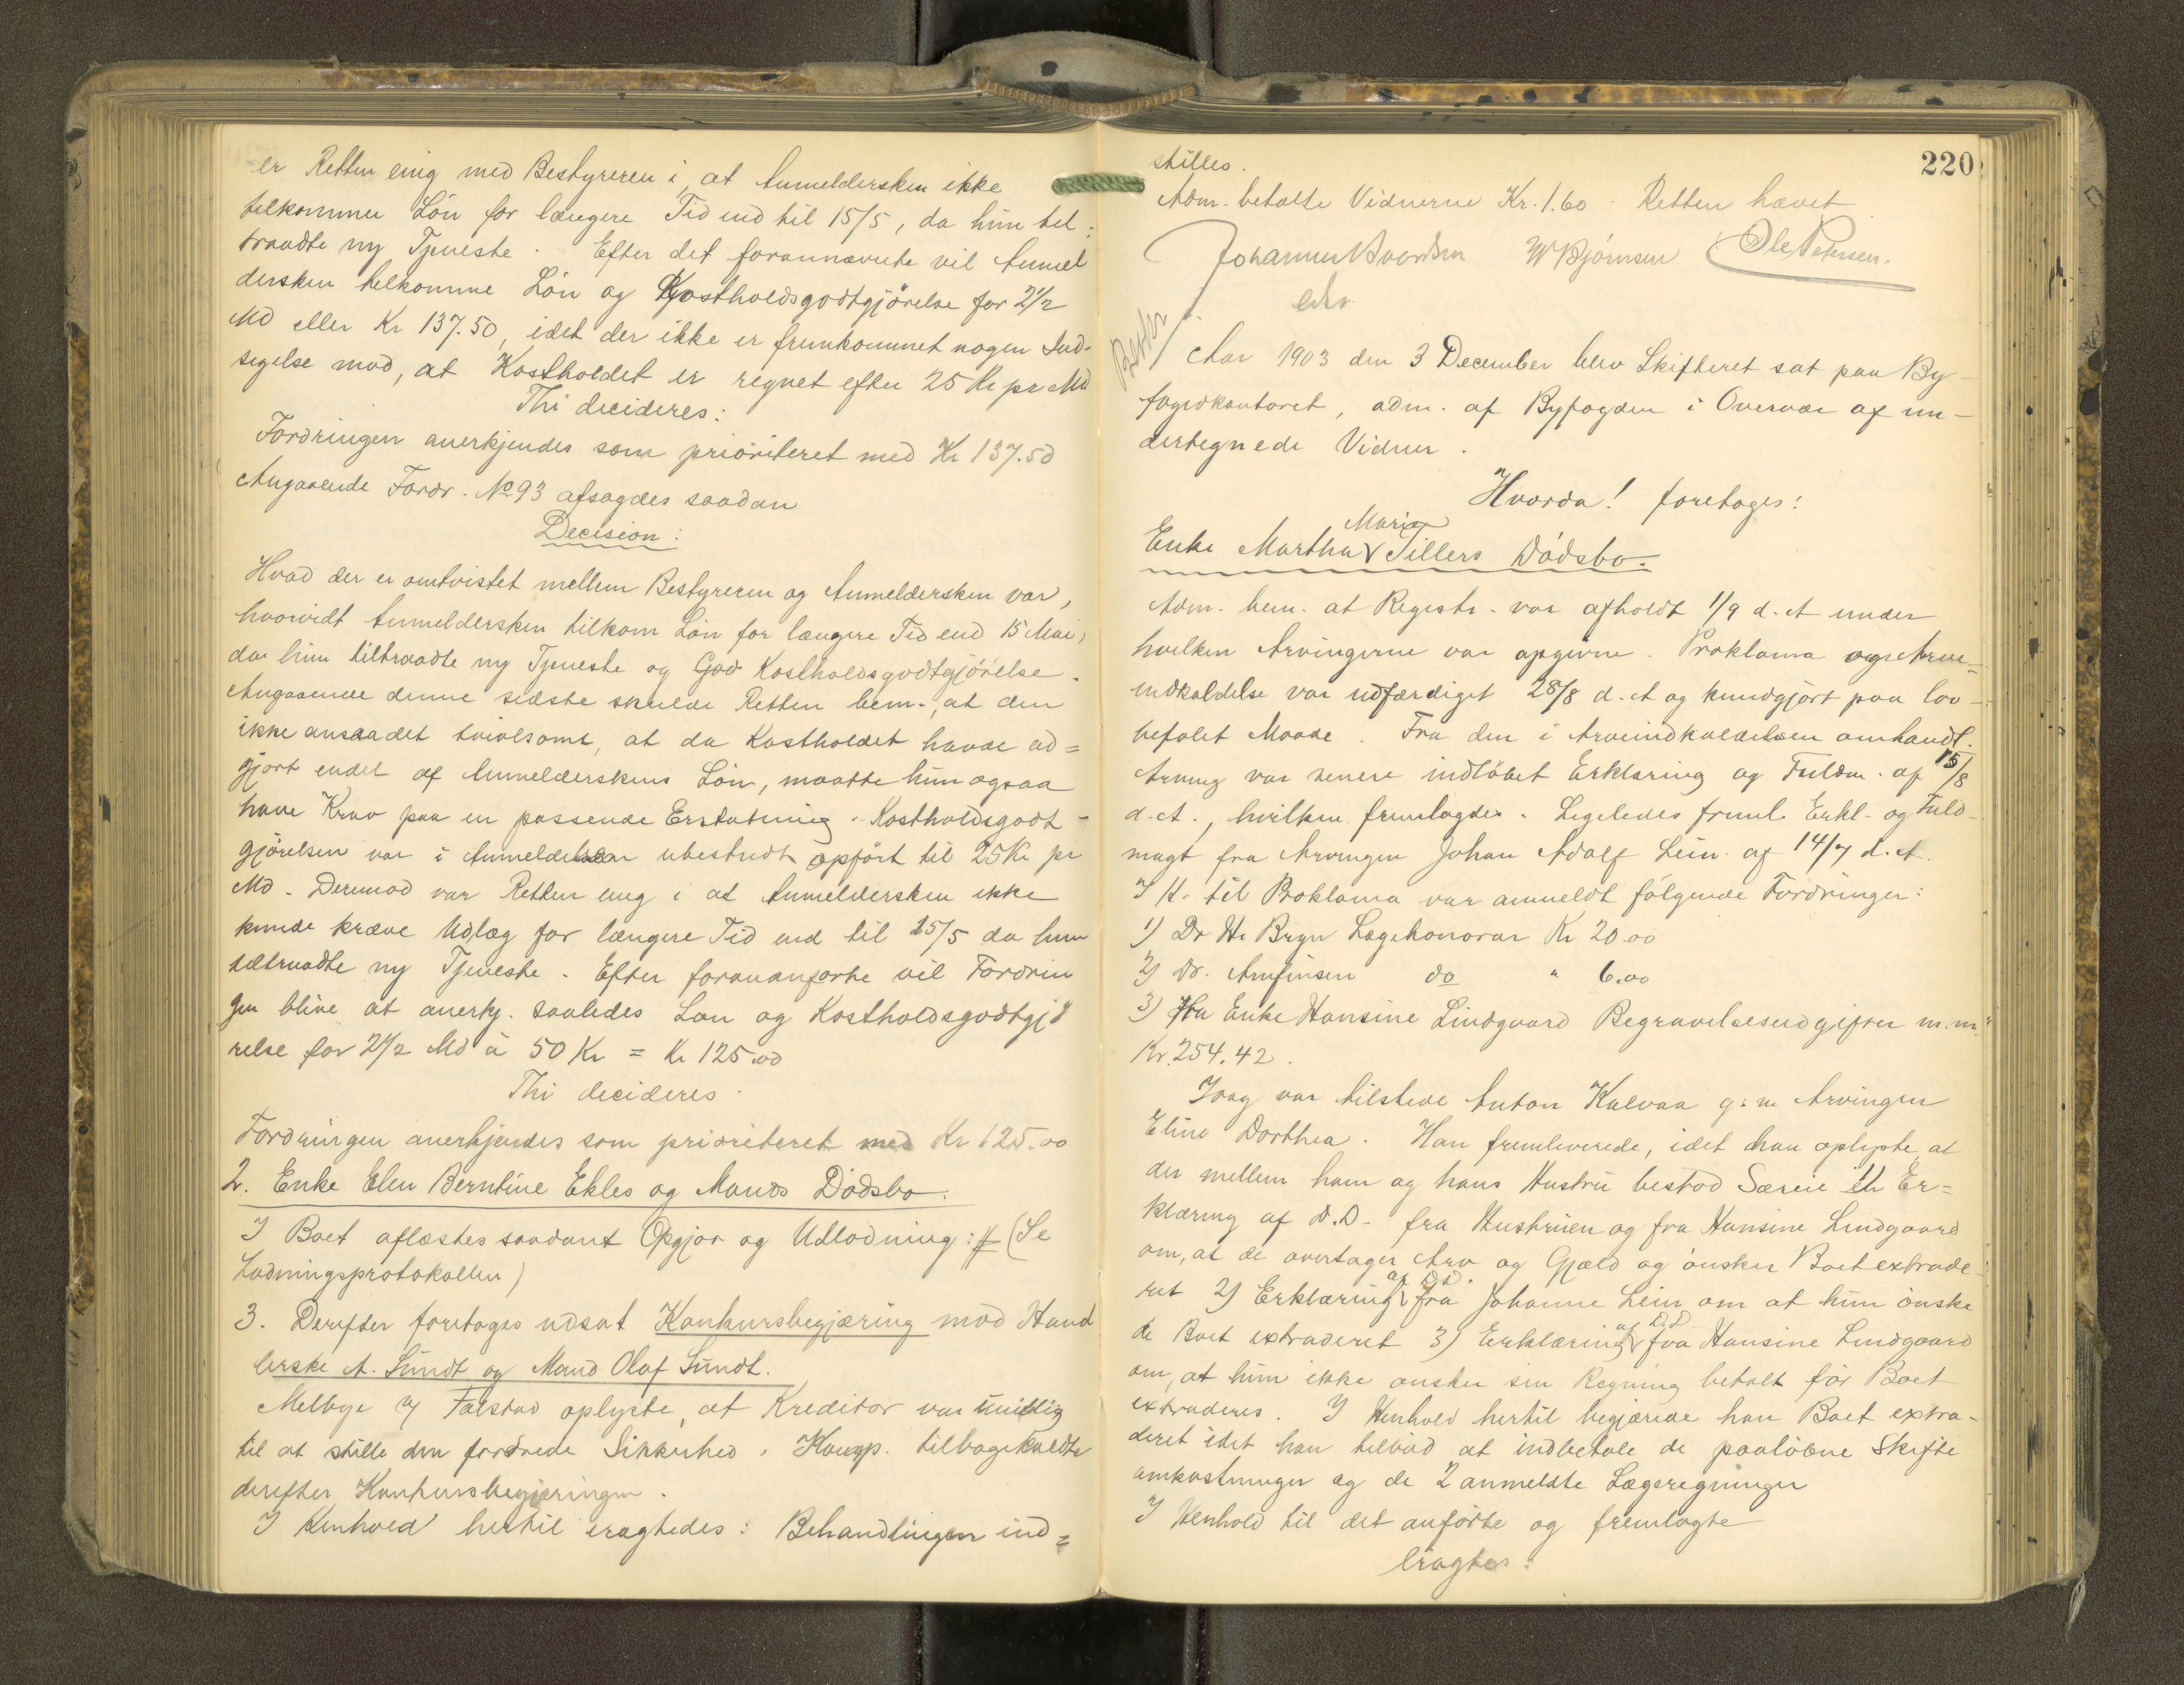 er Retten enig med Bestyreren i, at Anmeldersken ikke
tilkommer Lön for længere Tid end til 15/5, da hun til-
traadte ny Tjeneste. Efter det forannævnte vil Anmel
dersken tilkomme Lön og Kostholdsgodtgjörelse for 2 1/2
Md eller Kr 137.50, idet der ikke er fremkommet nogen Ind-
sigelse mod, at Kostholdet er regnet efter 25 Kr pr Md
Thi decideres:
Fordringen anerkjendes som prioriteret med Kr 137.50
Angaaende Fordr. No 93 afsagdes saadan
Decision:
Hvad der er omtvistet mellem Bestyreren og Anmeldersken var,
hvorvidt Anmeldersken tilkom Lön for længere Tid end 15 Mai,
da hun tiltraadte ny Tjeneste og God Kostholdsgodtgjörelse.
Angaaende denne sidste skulde Retten bem., at den
ikke ansaa det tvivlsomt, at da Kostholdet havde ud=
gjort endel af Anmelderskens Lön, maatte hun ogsaa
have Krav paa en passende Erstatning. Kostholdsgodt-
gjörelsen var i Anmeldelsen ubestridt opfört til 25 Kr pr
Md. Derimod var Retten enig i at Anmeldersken ikke
kunde kræve Udlæg for længere Tid end til 15/5 da hun
tiltraadte ny Tjeneste. Efter forananførte vil Fordrin
gen blive at anerkj. saaledes Løn og Kostholdsgodtgjö
relse for 2 1/2 Md à 50 Kr = Kr 125.00
Thi decideres
Fordringen anerkjendes som prioriteret med Kr 125.00
2. Enke Elen Berntine Ekles og Mands Dödsbo.
I Boet aflæstes saadant Opgjör og Udlodning: # (Se
Lodningsprotokollen)
3. Derefter foretoges udsat Konkursbegjæring mod Hand
lerske A. Sundt og Mand Olaf Sundt.
Melbye & Falstad oplyste, at Kreditor var uvillig
til at stille den fordrede Sikkerhed. Komp. tilbagekaldte
derefter Konkursbegjæringen.
I Henhold hertil eragtedes: Behandlingen ind=
220
stilles.
Adm. betalte Vidnerne Kr. 1.60. Retten hævet
W Bjørnsen Ole Petersen.
Aar 1903 den 3 December blev Skifteret sat paa By-
fogedkontoret, adm. af Byfogden i Overvær af un-
dertegnede Vidner.
Hvorda! foretoges:
Maria
Enke Martha v Tillers Dödsbo.
Adm. bem. at Registr. var afholdt 1/9 d. A under
hvilken Arvingerne var opgivne. Proklama og Arve-
indkaldelse var udfærdiget 28/8 d. A og kundgjort paa lov-
befalet Maade. Fra den i Arveindkaldelsen omhandl.
Arving var senere indlöbet Erklæring og Fuldm. af 15/8
d. A., hvilken fremlagdes. Ligeledes freml. Erkl. og Fuld-
magt fra Arvingen Johan Adolf Lein af 14/7 d. A.
I H. til Proklama var anmeldt fölgende Fordringer:
1) Dr H. Bryn Lægehonorar Kr 20.00
2) Dr. Arnfinsen do " 6.00
3) Fra Enke Hansine Lindgaard Begravelsesudgifter m.m.
Kr. 254.42.
Idag var tilstede Anton Kalvaa g. m. Arvingen
Eline Dorthea. Han fremleverede, idet han oplyste, at
der mellem ham og hans Hustru bestod Særeie 1) Er=
klæring af D.D. fra Hustruen og fra Hansine Lindgaard
om, at de overtager Arv og Gjæld og önsker Boet extrade-
af D.D.
ret 2) Erklæring v fra Johanne Lein om at hun önske
af D.D
de Boet extraderet 3) Erklæring v fra Hansine Lindgaard
om, at hun ikke önsker sin Regning betalt för Boet
extraderes. I Henhold hertil begjærede han Boet extra-
deret idet han tilböd at indbetale de paalöbne Skifte
omkostninger og de 2 anmeldte Lægeregninger
I Henhold til det anförte og fremlagte
eragtes: